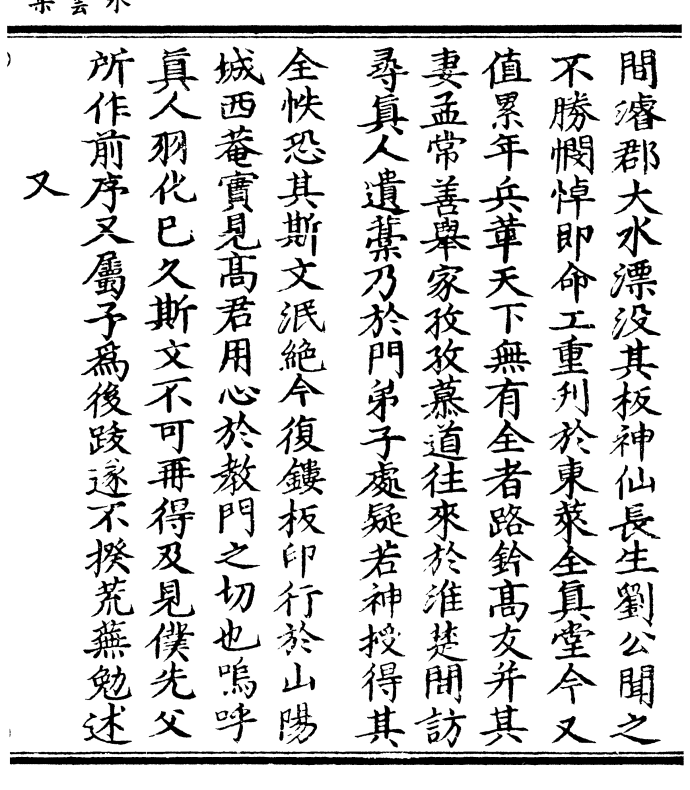 間濬郡大水漂没其板神仙長生劉公聞之
不勝憫悼即命工重刋於東萊全眞堂今又
值累年兵革天下無有全者路鈐髙友并其
妻孟常善舉家孜孜慕道往來於淮楚間訪
尋眞人遺藁乃於門弟子處疑若神授得其
全帙恐其斯文泯絶今復鏤板印行於山陽
城西菴實見髙君用心於教門之切也嗚呼
眞人羽化已久斯文不可再得及見僕先父
所作前序又屬予爲後跋遂不揆荒蕪勉述
又